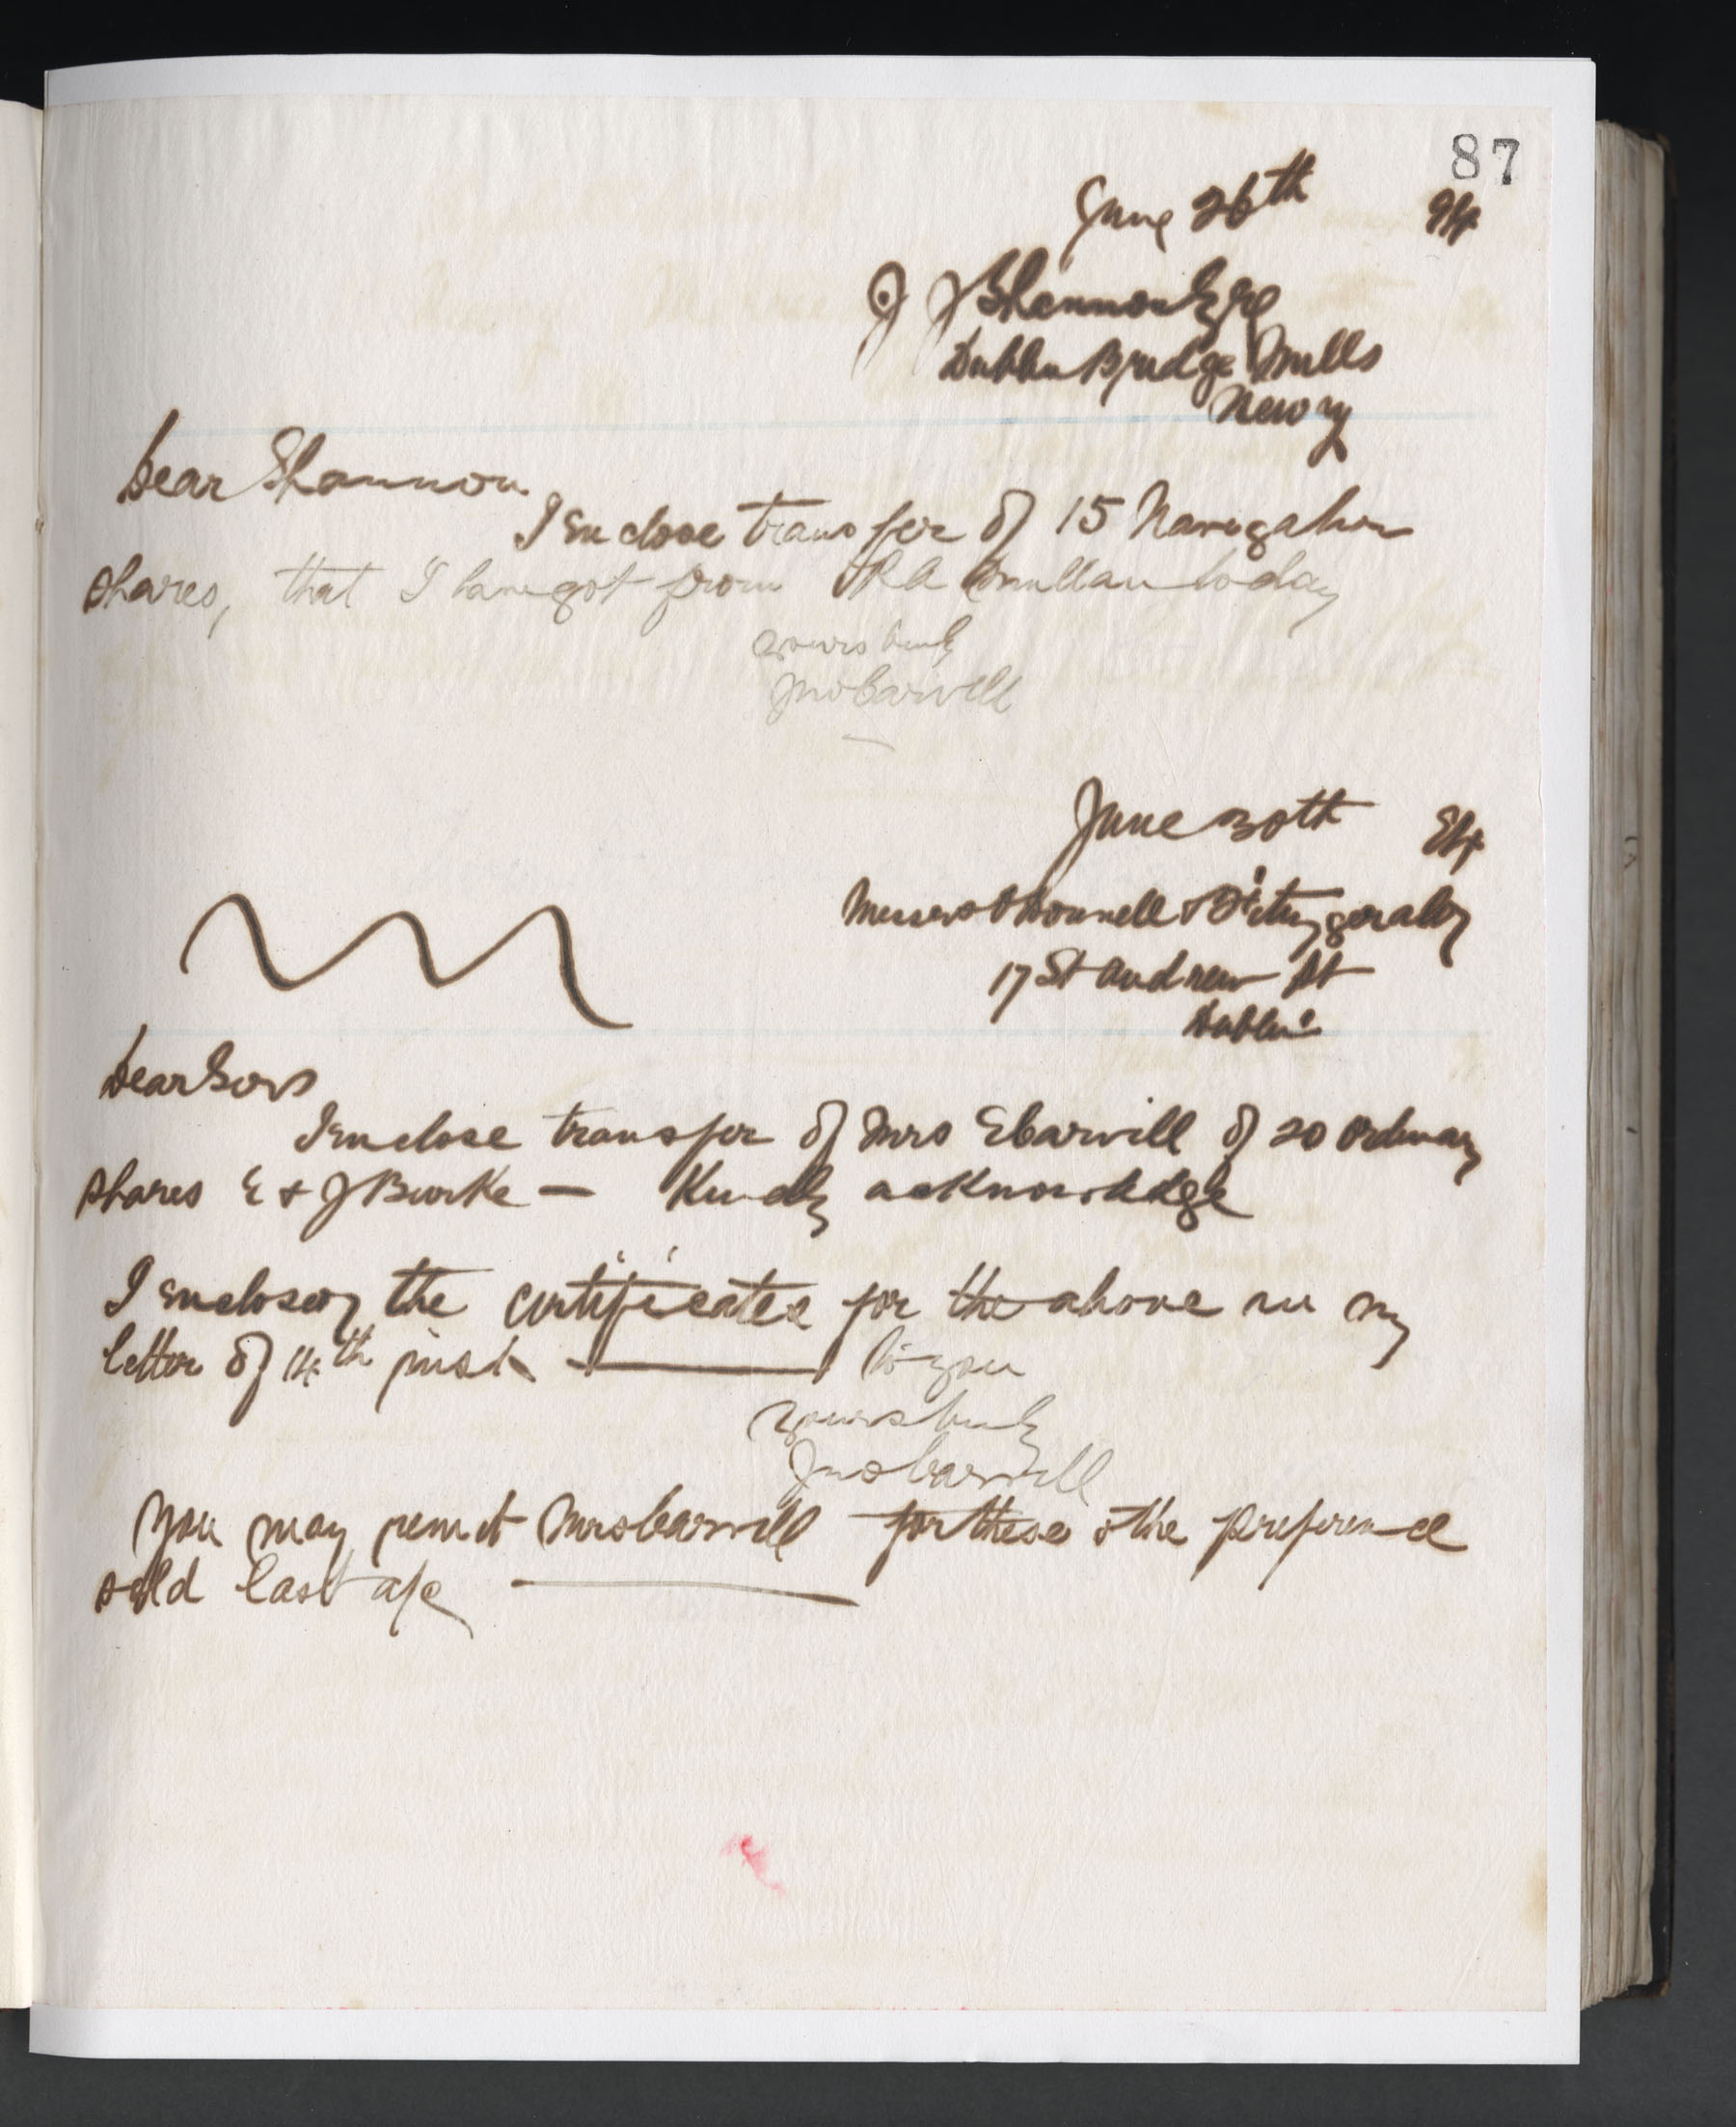 87
June 26th
J J Shannon Esqe
Dublin Bridge Mills
Newry
Dear Shannon
I enclose transfer of 15 Navigation
shares, that I have got from R A Mullan today
yours truly
Jno Carvill
June 30th
Messers O Donnell & Fitzgerald
17 St Andrew St
Dublin
Dear Sirs
I enclose transfer of Mrs E Carvill of 20 Ordinary
shares E & J Burke — Kindly acknowledge
I enclosed the certificates for the above in my
letter of 14th inst — to you
yours truly
Jno Carvill
You may remit Mrs Carvill for these & the preference
sold last a/c —